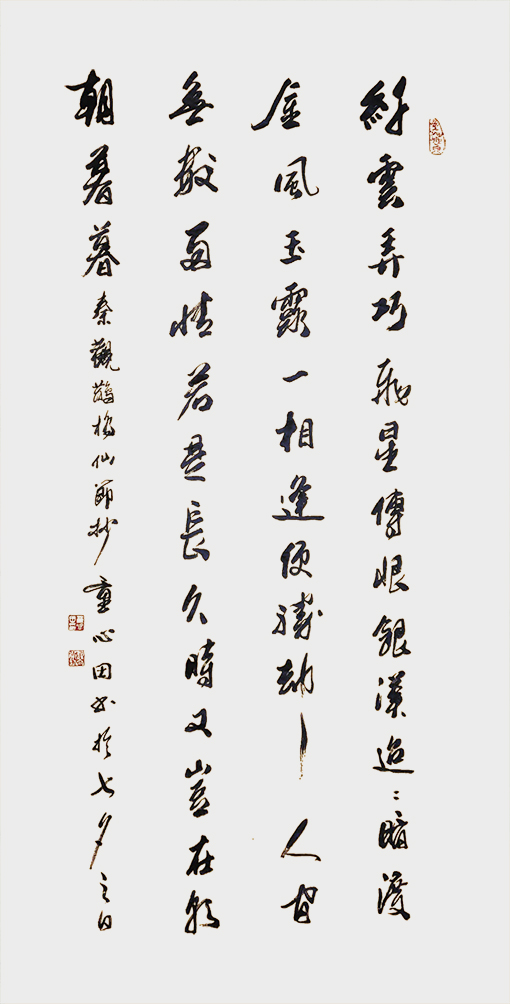 纤雲弄巧飛星傳恨銀漢迢〻暗渡
金風玉露一相逢便勝却人間
無數兩情若是長久時又豈在朝
朝暮暮秦觀鵲橋仙節抄童心田书於七夕之日